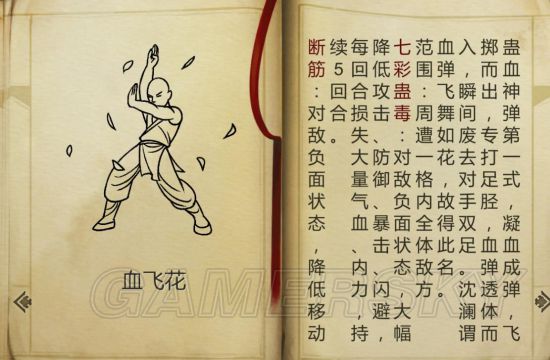 血飞花
蛊血神弹第一式，凝血成弹，飞
掷而出，专打足胫，血弹透体，而
入，瞬间废去对手双足。沈澜谓
血弹飞舞如花，故得此名。
范围：周遭一格内全体敌方。
七彩蛊毒：对敌负面状态，大幅
降低攻击、防御、暴击、闪避，
每回合损失大量气血、内力，持
续5回合。
断筋：对敌负面状态，降低移动
GAMERSKY